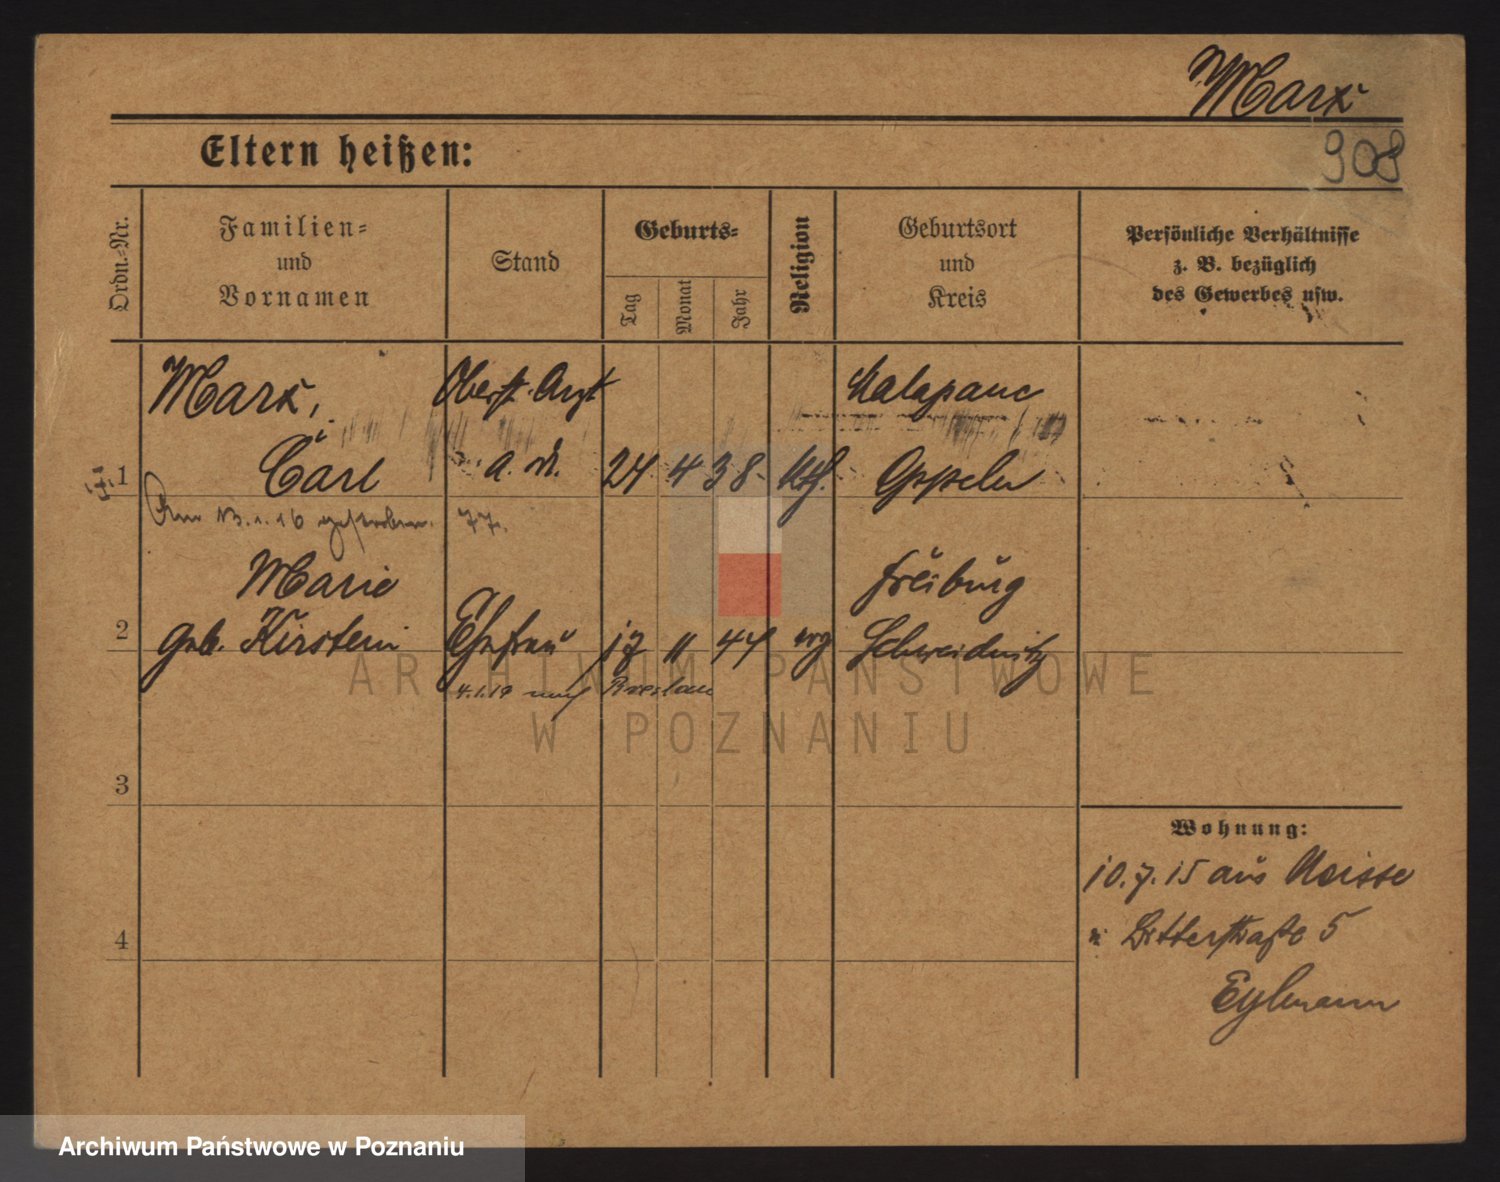 Marx
908
Eltern heißen:
Ordn.-Nr.
Familien-
und
Vornamen
Stand
Geburts-
Tag
Monat
Jahr
Religion
Geburtsort
und
Kreis
Persönliche Verhältnisse
z. B. bezüglich
des Gewerbes usw.
Marx, Oberst. Arzt Malapane
1 Carl a. D. 24 4 38 kth. Oppeln
Am 13.1.16 gestorben. 77.
Marie Freiburg
2 geb. Kirstein Ehefrau 17 11 44 evg Schweidnitz
4.1.19 nach Breslau
ARCHIWUM PAŃSTWOWE
W POZNANIU
3
Wohnung:
10.7.15 aus Neisse
4 Ritterstraße 5
Eylmann
Archiwum Państwowe w Poznaniu